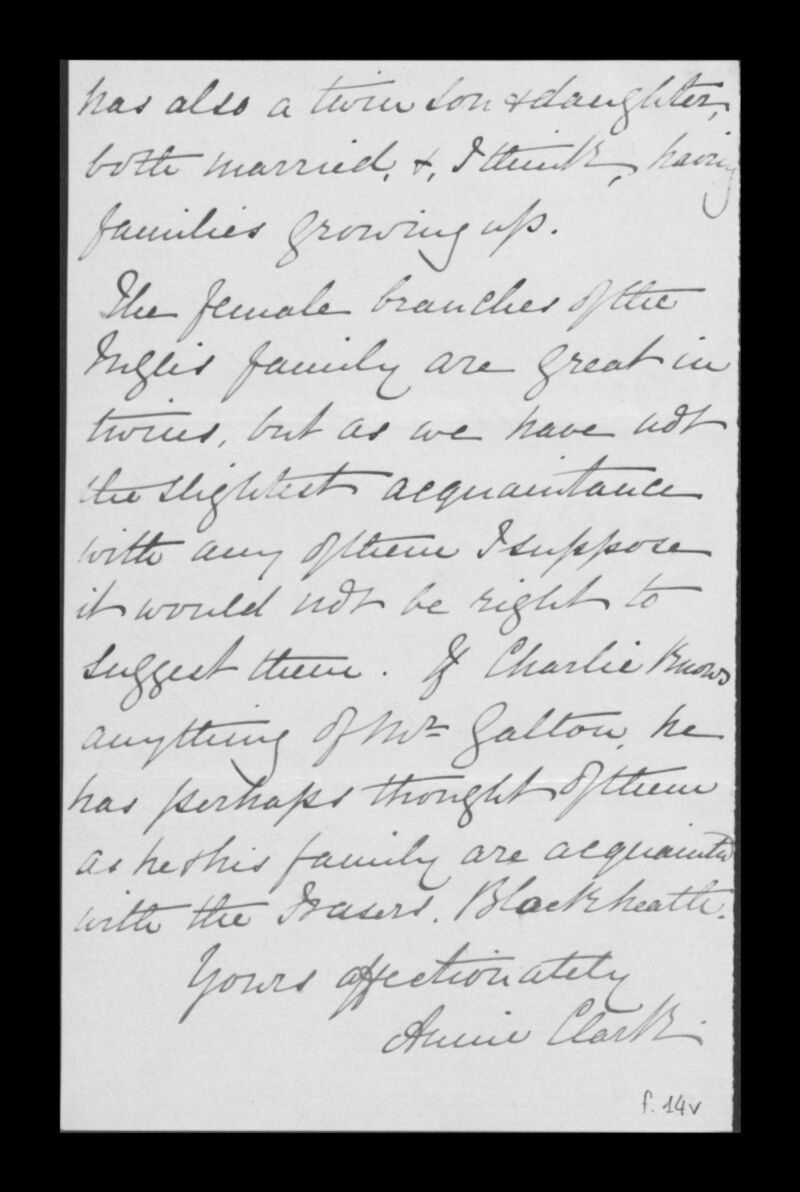 has also a twin son & daughter,
both married, &, I think, having
families growing up.
The female branches of the
Inglis family are great in
twins, but as we have not
the slightest acquaintance
with any of them I suppose
it would not be right to
suggest them. If Charlie knows
anything of Mr Galton, he
has perhaps thought of them
as he & his family are acquainted
with the Frasers. Blackheath.
Yours affectionately
Annie Clark.
f. 14v